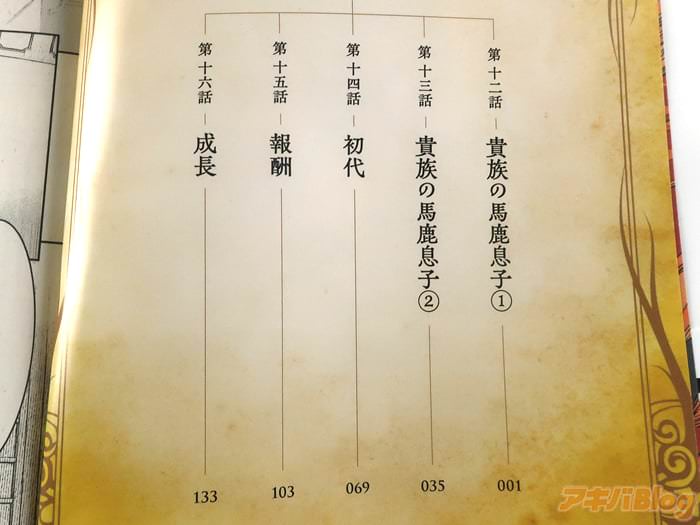 第十二話 貴族の馬鹿息子① 001
第十三話 貴族の馬鹿息子② 035
第十四話 初代 069
第十五話 報酬 103
第十六話 成長 133
アキバBlog